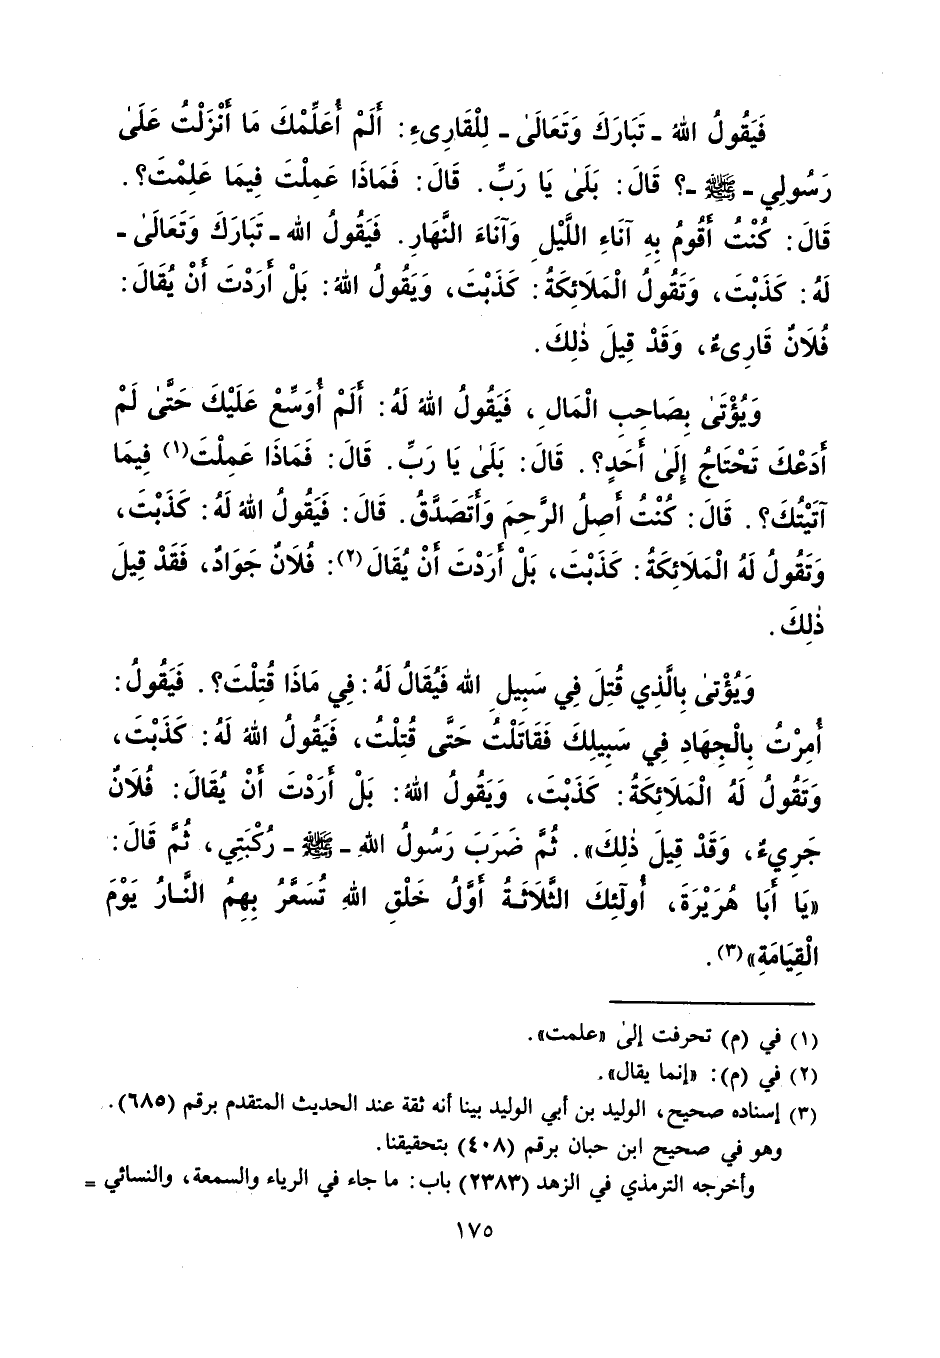 فَيَقُولُ اللهُ - تَبَارَكَ وَتَعَالَىٰ - لِلْقَارِىءِ: أَلَمْ أُعَلِّمْكَ مَا أَنْزَلْتُ عَلَىٰ
رَسُولِي - ﷺ -؟ قَالَ: بَلَىٰ يَا رَبِّ. قَالَ: فَمَاذَا عَمِلْتَ فِيمَا عَلِمْتَ؟.
قَالَ: كُنْتُ أَقُومُ بِهِ آنَاءِ اللَّيْلِ وَآنَاءَ النَّهَارِ. فَيَقُولُ اللهُ - تَبَارَكَ وَتَعَالَىٰ -
لَهُ: كَذَبْتَ، وَتَقُولُ الْمَلَائِكَةُ: كَذَبْتَ، وَيَقُولُ اللهُ: بَلْ أَرَدْتَ أَنْ يُقَالَ:
فُلَانٌ قَارِىءٌ، وَقَدْ قِيلَ ذٰلِكَ.
وَيُؤْتَىٰ بِصَاحِبِ الْمَالِ، فَيَقُولُ اللهُ لَهُ: أَلَمْ أُوَسِّعْ عَلَيْكَ حَتَّىٰ لَمْ
أَدَعْكَ تَحْتَاجُ إِلَىٰ أَحَدٍ؟. قَالَ: بَلَىٰ يَا رَبِّ. قَالَ: فَمَاذَا عَمِلْتَ(١) فِيمَا
آتَيْتُكَ؟. قَالَ: كُنْتُ أَصِلُ الرَّحِمَ وَأَتَصَدَّقُ. قَالَ: فَيَقُولُ اللهُ لَهُ: كَذَبْتَ،
وَتَقُولُ لَهُ الْمَلَائِكَةُ: كَذَبْتَ، بَلْ أَرَدْتَ أَنْ يُقَالَ(٢): فُلَانٌ جَوَادٌ، فَقَدْ قِيلَ
ذٰلِكَ.
وَيُؤْتىٰ بِالَّذِي قُتِلَ فِي سَبِيلِ اللهِ فَيُقَالُ لَهُ: فِي مَاذَا قُتِلْتَ؟. فَيَقُولُ:
أُمِرْتُ بِالْجِهَادِ فِي سَبِيلِكَ فَقَاتَلْتُ حَتَّى قُتِلْتُ، فَيَقُولُ اللهُ لَهُ: كَذَبْتَ،
وَتَقُولُ لَهُ الْمَلَائِكَةُ: كَذَبْتَ، وَيَقُولُ اللهُ: بَلْ أَرَدْتَ أَنْ يُقَالَ: فُلَانٌ
جَرِيءٌ، وَقَدْ قِيلَ ذٰلِكَ». ثُمَّ ضَرَبَ رَسُولُ اللهِ - ﷺ - رُكْبَتِي، ثُمَّ قَالَ:
«يَا أَبَا هُرَيْرَةَ، أُولَئِكَ الثَّلاثَةُ أَوَّلُ خَلْقِ اللهِ تُسَعَّرُ بِهِمُ النَّارُ يَوْمَ
الْقِيَامَةِ»(٣).
(١) في (م) تحرفت إلىٰ «علمت».
(٢) في (م): «إنما يقال».
(٣) إسناده صحيح، الوليد بن أبي الوليد بينا أنه ثقة عند الحديث المتقدم برقم (٦٨٥).
وهو في صحيح ابن حبان برقم (٤٠٨) بتحقيقنا.
وأخرجه الترمذي في الزهد (٢٣٨٣) باب: ما جاء في الرياء والسمعة، والنسائي =
١٧٥